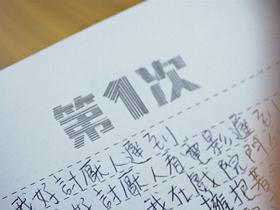 第1次
我好討厭人遲到
好討厭人看電影遲到
我在戲院門
擁抱著